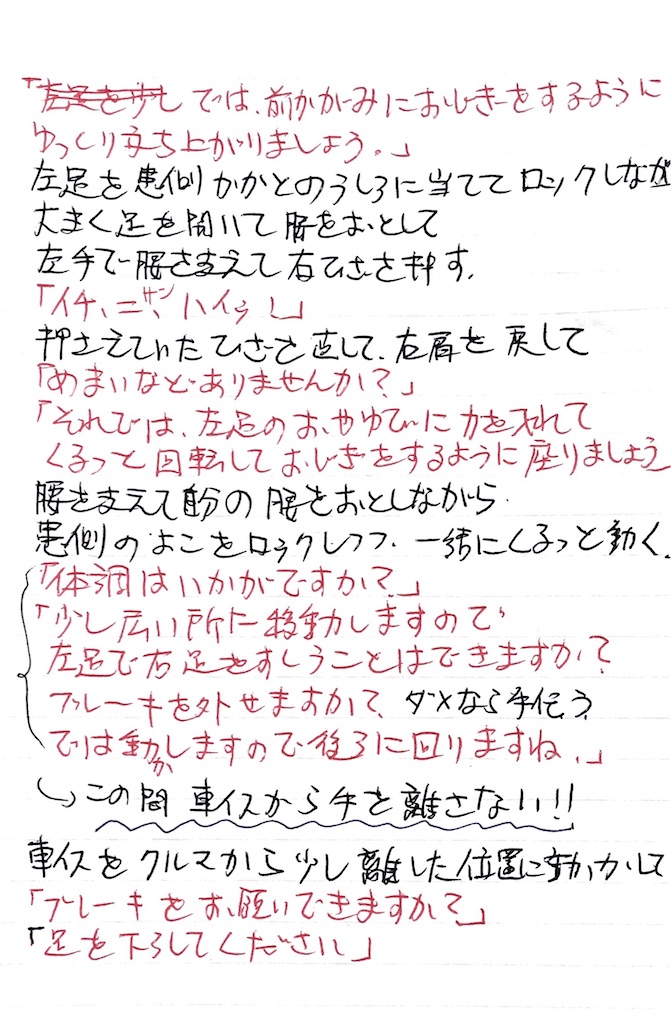 「左足を少し では、前かがみにおじぎをするように
ゆっくり立ち上がりましょう。」
左足を患側かかとのうしろに当ててロックしなが
大きく足を開いて腰をおとして
左手で腰を支えて右ひざを押す.
「イチ、ニ、サン ハイッ！」
押さえていたひざを直して、右肩を戻して
「めまいなどありませんか？」
「それでは、左足のおやゆびに力を入れて
くるっと回転しておじぎをするように座りましょう
腰を支えて自分の腰をおとしながら.
患側のよこをロックしつつ. 一緒にくるっと動く.
「体調はいかがですか？」
「少し広い所に移動しますので
左足で右足をすくうことはできますか？
ブレーキを外せますかて、ダメなら手伝う.
では動かしますので後ろに回りますね.」
この間 車イスから手を離さない!!
車イスをクルマから少し離した位置に動かして
「ブレーキをお願いできますか？」
「足を下ろしてください」